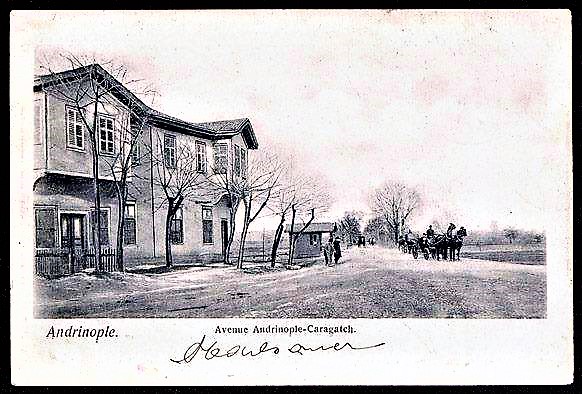 Andrinople.
Avenue Andrinople-Caragatch.